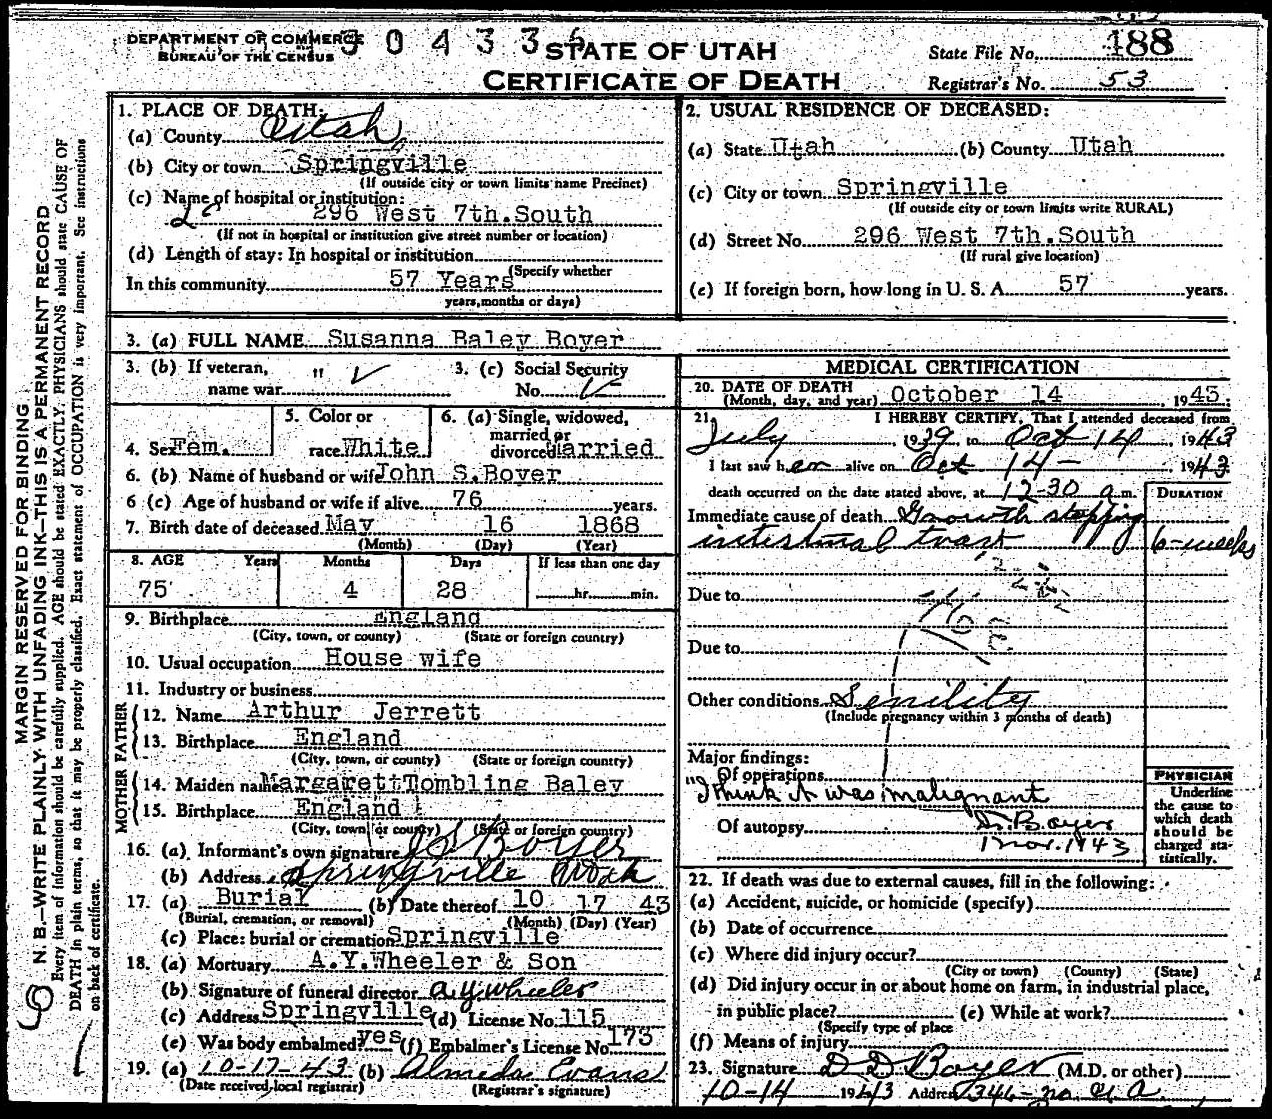 DEPARTMENT OF COMMERCE
BUREAU OF THE CENSUS
STATE OF UTAH
CERTIFICATE OF DEATH
State File No. 188
Registrar's No. 53
MARGIN RESERVED FOR BINDING
N. B.—WRITE PLAINLY WITH UNFADING INK—THIS IS A PERMANENT RECORD
Every item of information should be carefully supplied. AGE should be stated EXACTLY. PHYSICIANS should state CAUSE OF
DEATH in plain terms, so that it may be properly classified. Exact statement of OCCUPATION is very important. See instructions
on back of certificate.
1. PLACE OF DEATH:
(a) County Utah
(b) City or town Springville
(If outside city or town limits name Precinct)
(c) Name of hospital or institution:
296 West 7th.South
(If not in hospital or institution give street number or location)
(d) Length of stay: In hospital or institution
(Specify whether
In this community 57 Years
years, months or days)
2. USUAL RESIDENCE OF DECEASED:
(a) State Utah (b) County Utah
(c) City or town Springville
(If outside city or town limits write RURAL)
(d) Street No. 296 West 7th.South
(If rural give location)
(e) If foreign born, how long in U. S. A. 57 years.
3. (a) FULL NAME Susanna Baley Boyer
3. (b) If veteran,
name war "
3. (c) Social Security
No.
4. Sex Fem.
5. Color or
race White
6. (a) Single, widowed,
married or
divorced Married
6. (b) Name of husband or wife John S.Boyer
6 (c) Age of husband or wife if alive 76 years.
7. Birth date of deceased May 16 1868
(Month) (Day) (Year)
8. AGE Years Months Days If less than one day
75 4 28 hr. min.
9. Birthplace England
(City, town, or county) (State or foreign country)
10. Usual occupation House wife
11. Industry or business
FATHER
12. Name Arthur Jerrett
13. Birthplace England
(City, town, or county) (State or foreign country)
MOTHER
14. Maiden name Margarett Tombling Baley
15. Birthplace England
(City, town or county) (State or foreign country)
16. (a) Informant's own signature J S Boyer
(b) Address Springville Utah
17. (a) Burial (b) Date thereof 10 17 43
(Burial, cremation, or removal) (Month) (Day) (Year)
(c) Place: burial or cremation Springville
18. (a) Mortuary A.Y.Wheeler & Son
(b) Signature of funeral director A.Y. Wheeler
(c) Address Springville (d) License No. 115
(e) Was body embalmed? yes (f) Embalmer's License No. 173
19. (a) 10-17-43 (b) Almeda Evans
(Date received local registrar) (Registrar's signature)
MEDICAL CERTIFICATION
20. DATE OF DEATH
(Month, day, and year) October 14 1943.
21. I HEREBY CERTIFY, That I attended deceased from
July 1939 to Oct 14 1943
I last saw her alive on Oct 14- 1943
death occurred on the date stated above, at 12-30 a.m.
DURATION
Immediate cause of death Growth stopping
intestinal tract 6-weeks
Due to
Due to
Other conditions Senility
(Include pregnancy within 3 months of death)
Major findings:
Of operations
"I think it was malignant
Of autopsy D. Boyer
Nov. 1943
PHYSICIAN
Underline
the cause to
which death
should be
charged sta-
tistically.
22. If death was due to external causes, fill in the following:
(a) Accident, suicide, or homicide (specify)
(b) Date of occurrence
(c) Where did injury occur?
(City or town) (County) (State)
(d) Did injury occur in or about home on farm, in industrial place,
in public place? (e) While at work?
(Specify type of place
(f) Means of injury
23. Signature D D Boyer (M.D. or other)
10-14 1943 Address